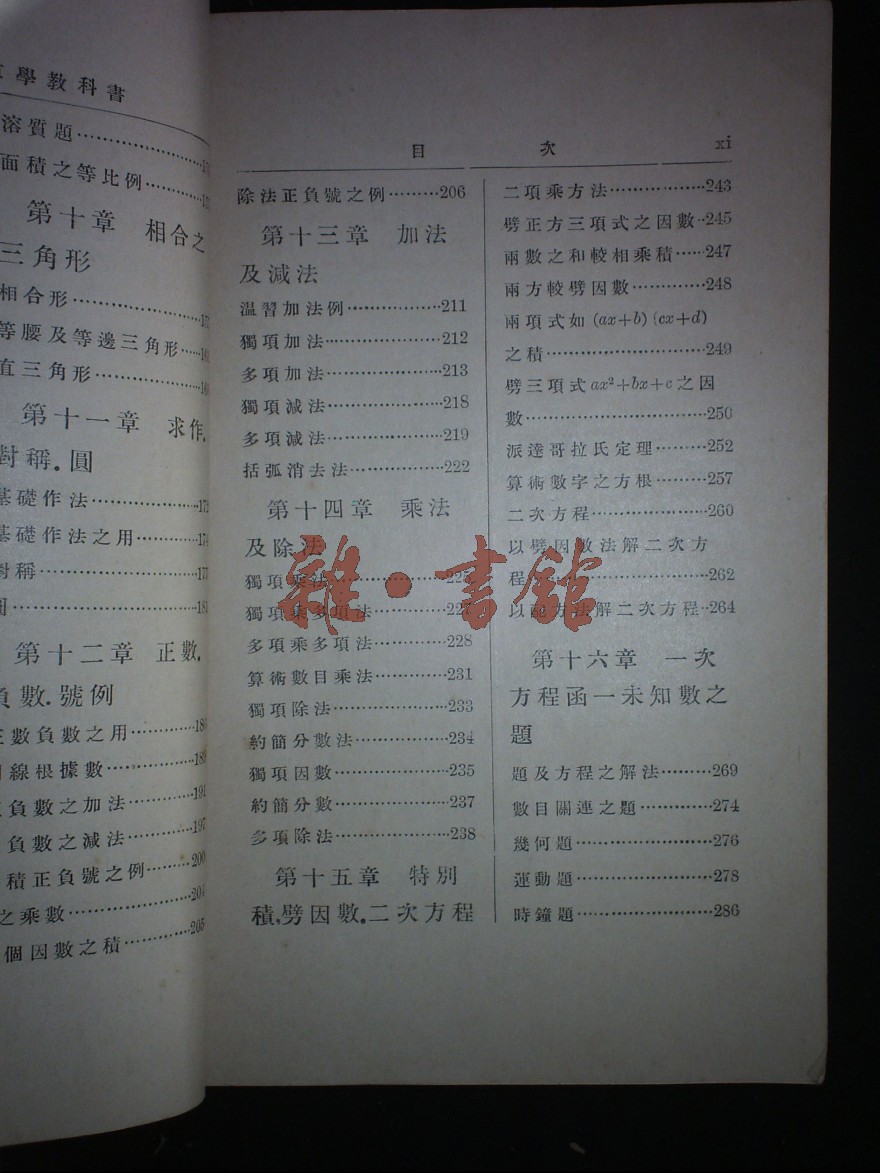 學教科書
溶質題
面積之等比例
第十章 相合之
三角形
相合形
等腰及等邊三角形
直三角形
第十一章 求作.
對稱.圓
基礎作法……179
基礎作法之用……17
對稱……17
圓……181
第十二章 正數.
負數.號例
正數負數之用……18
線根據數……189
負數之加法……191
負數之減法……197
積正負號之例……200
之乘數……204
個因數之積……205
目 次 xi
除法正負號之例……206
第十三章 加法
及減法
温習加法例……211
獨項加法……212
多項加法……213
獨項減法……218
多項減法……219
括弧消去法……222
第十四章 乘法
及除法
獨項乘法……225
獨項乘多項法……227
多項乘多項法……228
算術數目乘法……231
獨項除法……233
約簡分數法……234
獨項因數……235
約簡分數……237
多項除法……238
第十五章 特別
積,劈因數.二次方程
二項乘方法……243
劈正方三項式之因數..245
兩數之和較相乘積……247
兩方較劈因數……248
兩項式如 (ax+b) (cx+d)
之積……249
劈三項式 ax²+bx+c 之因
數……250
派達哥拉氏定理……252
算術數字之方根……257
二次方程……260
以劈因數法解二次方
程……262
以配方法解二次方程..264
第十六章 一次
方程函一未知數之
題
題及方程之解法……269
數目關連之題……274
幾何題……276
運動題……278
時鐘題……286
雜·書館